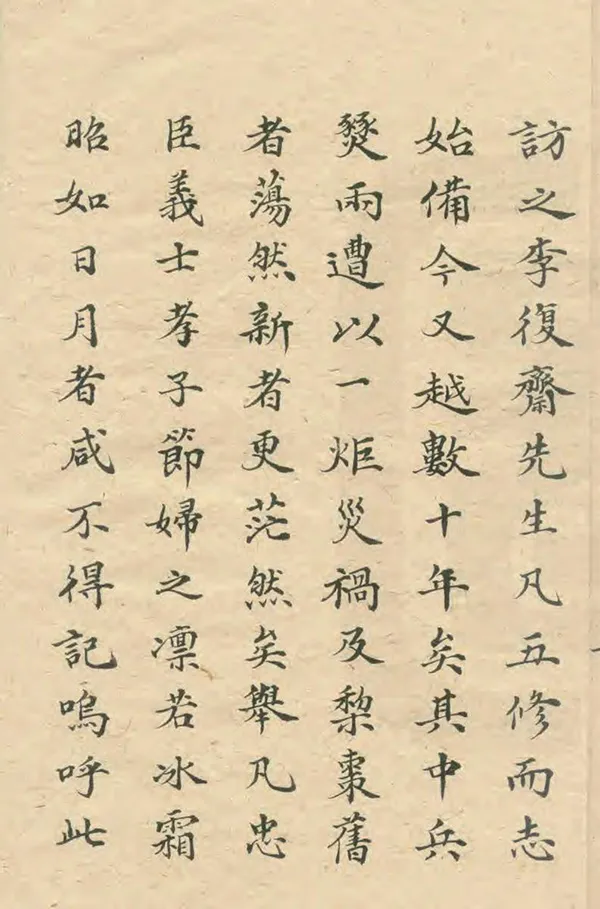 訪之李復齋先生凡五修而志
始備今又越數十年矣其中兵
燹雨遭以一炬災禍及梨棗舊
者蕩然新者更茫然矣舉凡忠
臣義士孝子節婦之凛若冰霜
昭如日月者咸不得記嗚呼此